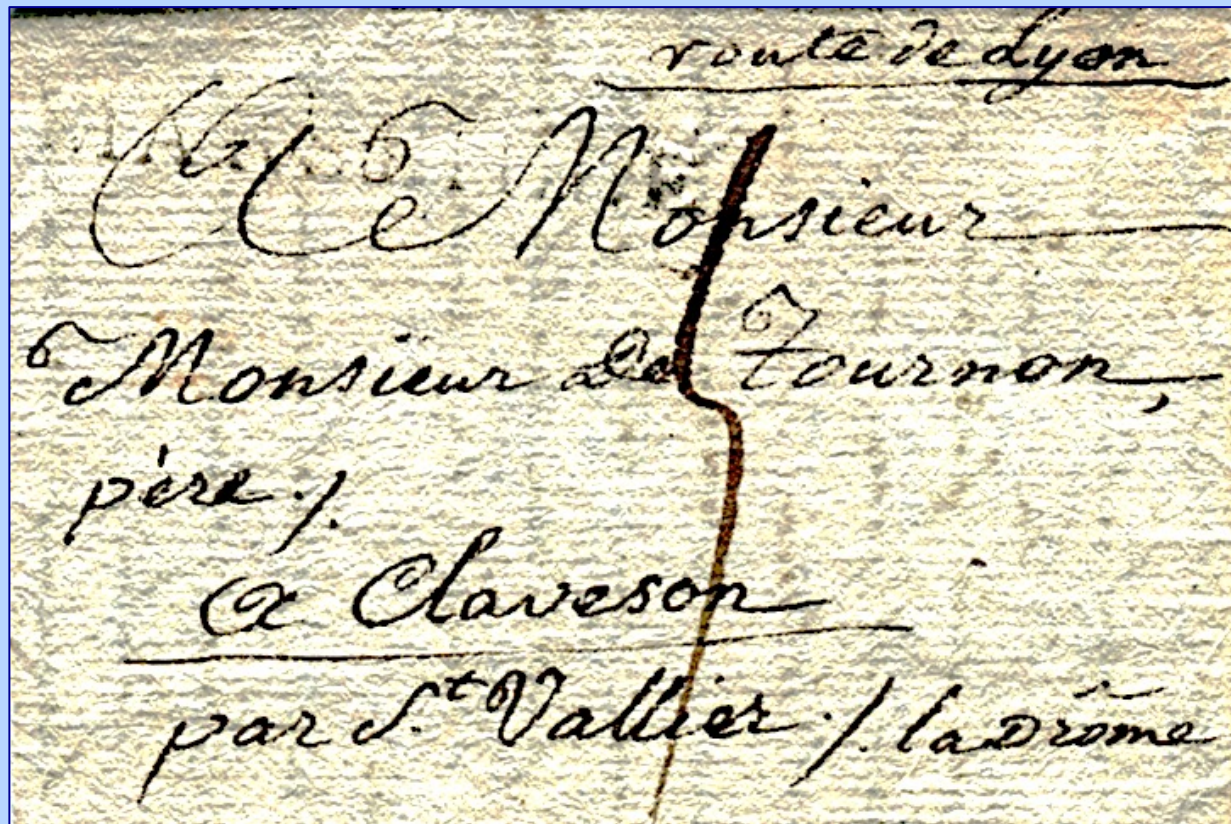 route de Lyon
A Monsieur
Monsieur De Tournon,
père ./.
a Claveson
par S.t Vallier ./. la Drôme